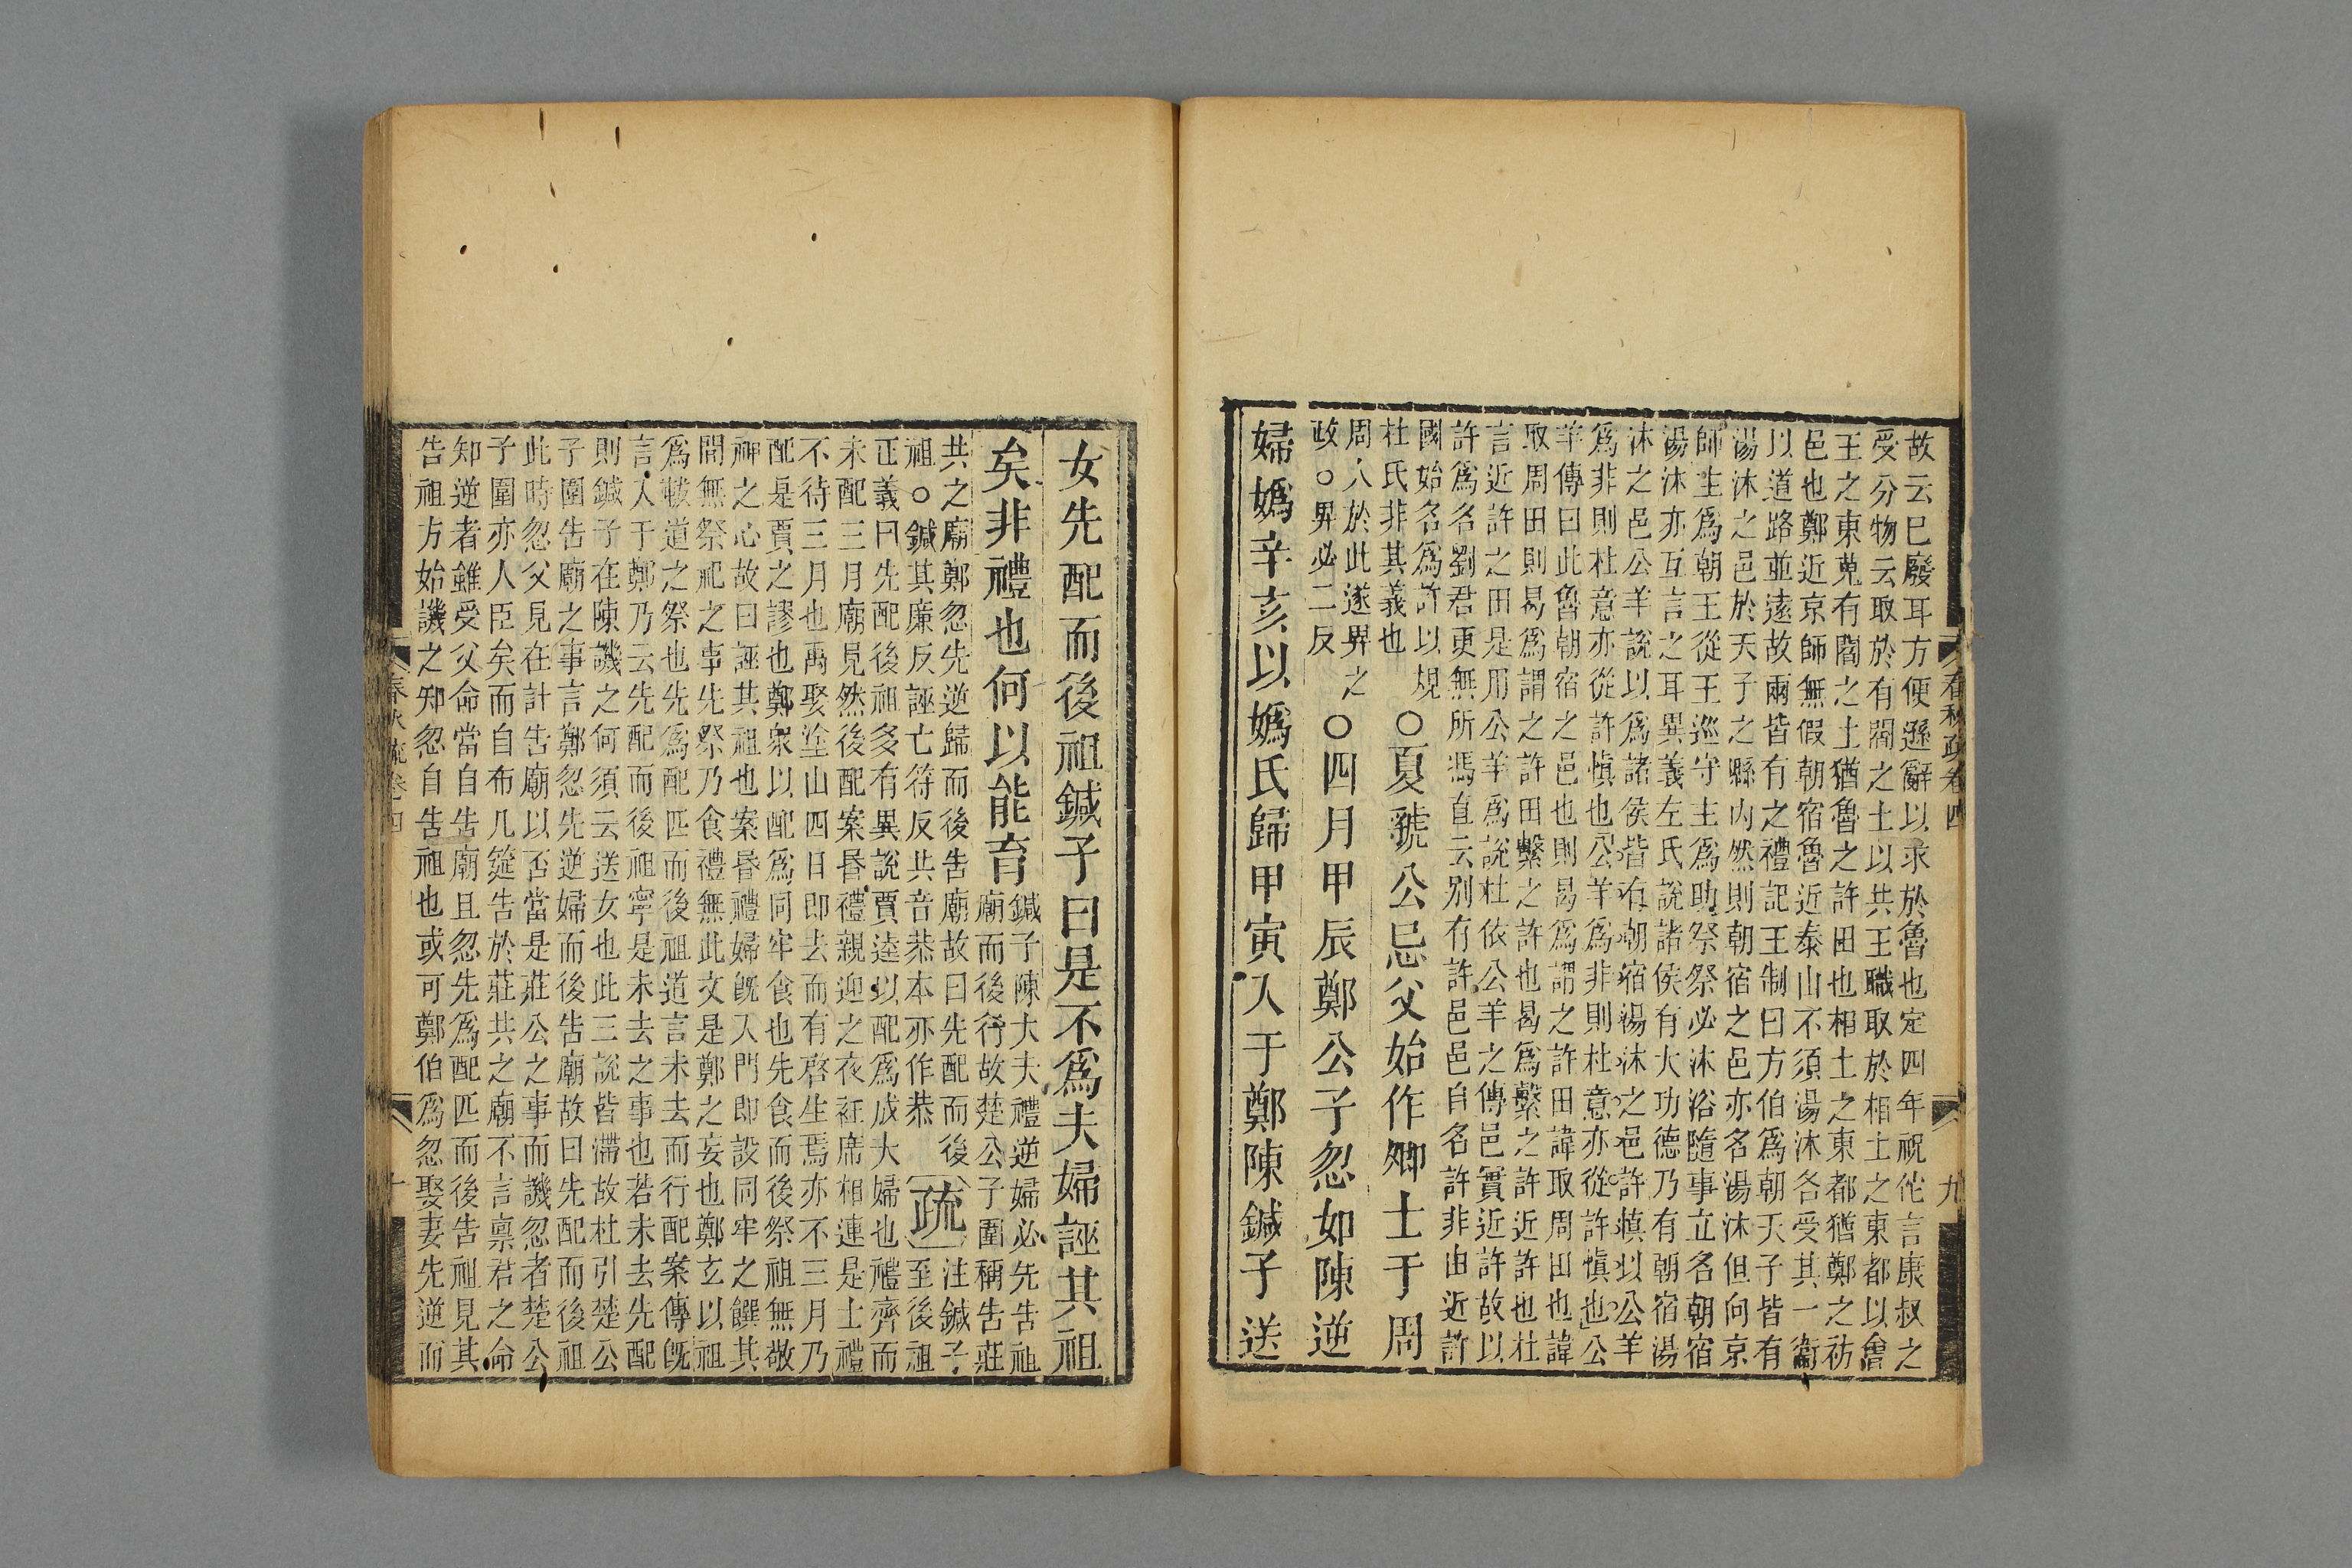 春秋疏卷四　九
故云已廢耳方便遜辭以求於魯也定四年祝佗言康叔之
受分物云取於有閻之土以共王職取於相土之東都以會
王之東蒐有閻之土猶魯之許田也相土之東都猶鄭之祊
邑也鄭近京師無假朝宿魯近泰山不須湯沐各受其一衞
以道路並遠故兩皆有之禮記王制曰方伯爲朝天子皆有
湯沐之邑於天子之縣內然則朝宿之邑亦名湯沐但向京
師主爲朝王從王巡守主爲助祭祭必沐浴隨事立名朝宿
湯沐亦互言之耳異義左氏說諸侯有大功德乃有朝宿湯
沐之邑公羊說以爲諸侯皆有朝宿湯沐之邑許慎以公羊
爲非則杜意亦從許慎也公羊爲非則杜意亦從許慎也公
羊傳曰此魯朝宿之邑也則曷爲謂之許田諱取周田也諱
取周田則曷爲謂之許田繫之許也曷爲繫之許近許也杜
言近許之田是用公羊爲說杜依公羊之傳邑實近許故以
許爲名劉君更無所馮直云别有許邑邑自名許非由近許
國始名爲許以規
杜氏非其義也
○夏虢公忌父始作卿士于周
周人於此遂畀之
政○畀必二反
○四月甲辰鄭公子忽如陳逆
婦媯辛亥以媯氏歸甲寅入于鄭陳鍼子送
女先配而後祖鍼子曰是不爲夫婦誣其祖
矣非禮也何以能育
鍼子陳大夫禮逆婦必先告祖
廟而後行故楚公子圍稱告莊
共之廟鄭忽先逆歸而後告廟故曰先配而後
祖○鍼其廉反誣亡符反共音恭本亦作恭
疏
注鍼子
至後祖
正義曰先配後祖多有異說賈逵以配爲成夫婦也禮齊而
未配三月廟見然後配案昏禮親迎之夜衽席相連是士禮
不待三月也禹娶塗山四日即去而有啓生焉亦不三月乃
配是賈之謬也鄭衆以配爲同牢食也先食而後祭祖無敬
神之心故曰誣其祖也案昏禮婦旣入門即設同牢之饌其
間無祭祀之事先祭乃食禮無此文是鄭之妄也鄭玄以祖
爲軷道之祭也先爲配匹而後祖道言未去而行配案傳旣
言入于鄭乃云先配而後祖寧是未去之事也若未去先配
則鍼子在陳譏之何須云送女也此三說皆滯故杜引楚公
子圍告廟之事言鄭忽先逆婦而後告廟故曰先配而後祖
此時忽父見在計告廟以否當是莊公之事而譏忽者楚公
子圍亦人臣矣而自布几筵告於莊共之廟不言稟君之命
知逆者雖受父命當自告廟且忽先爲配匹而後告祖見其
告祖方始譏之知忽自告祖也或可鄭伯爲忽娶妻先逆而
春秋疏卷四　十